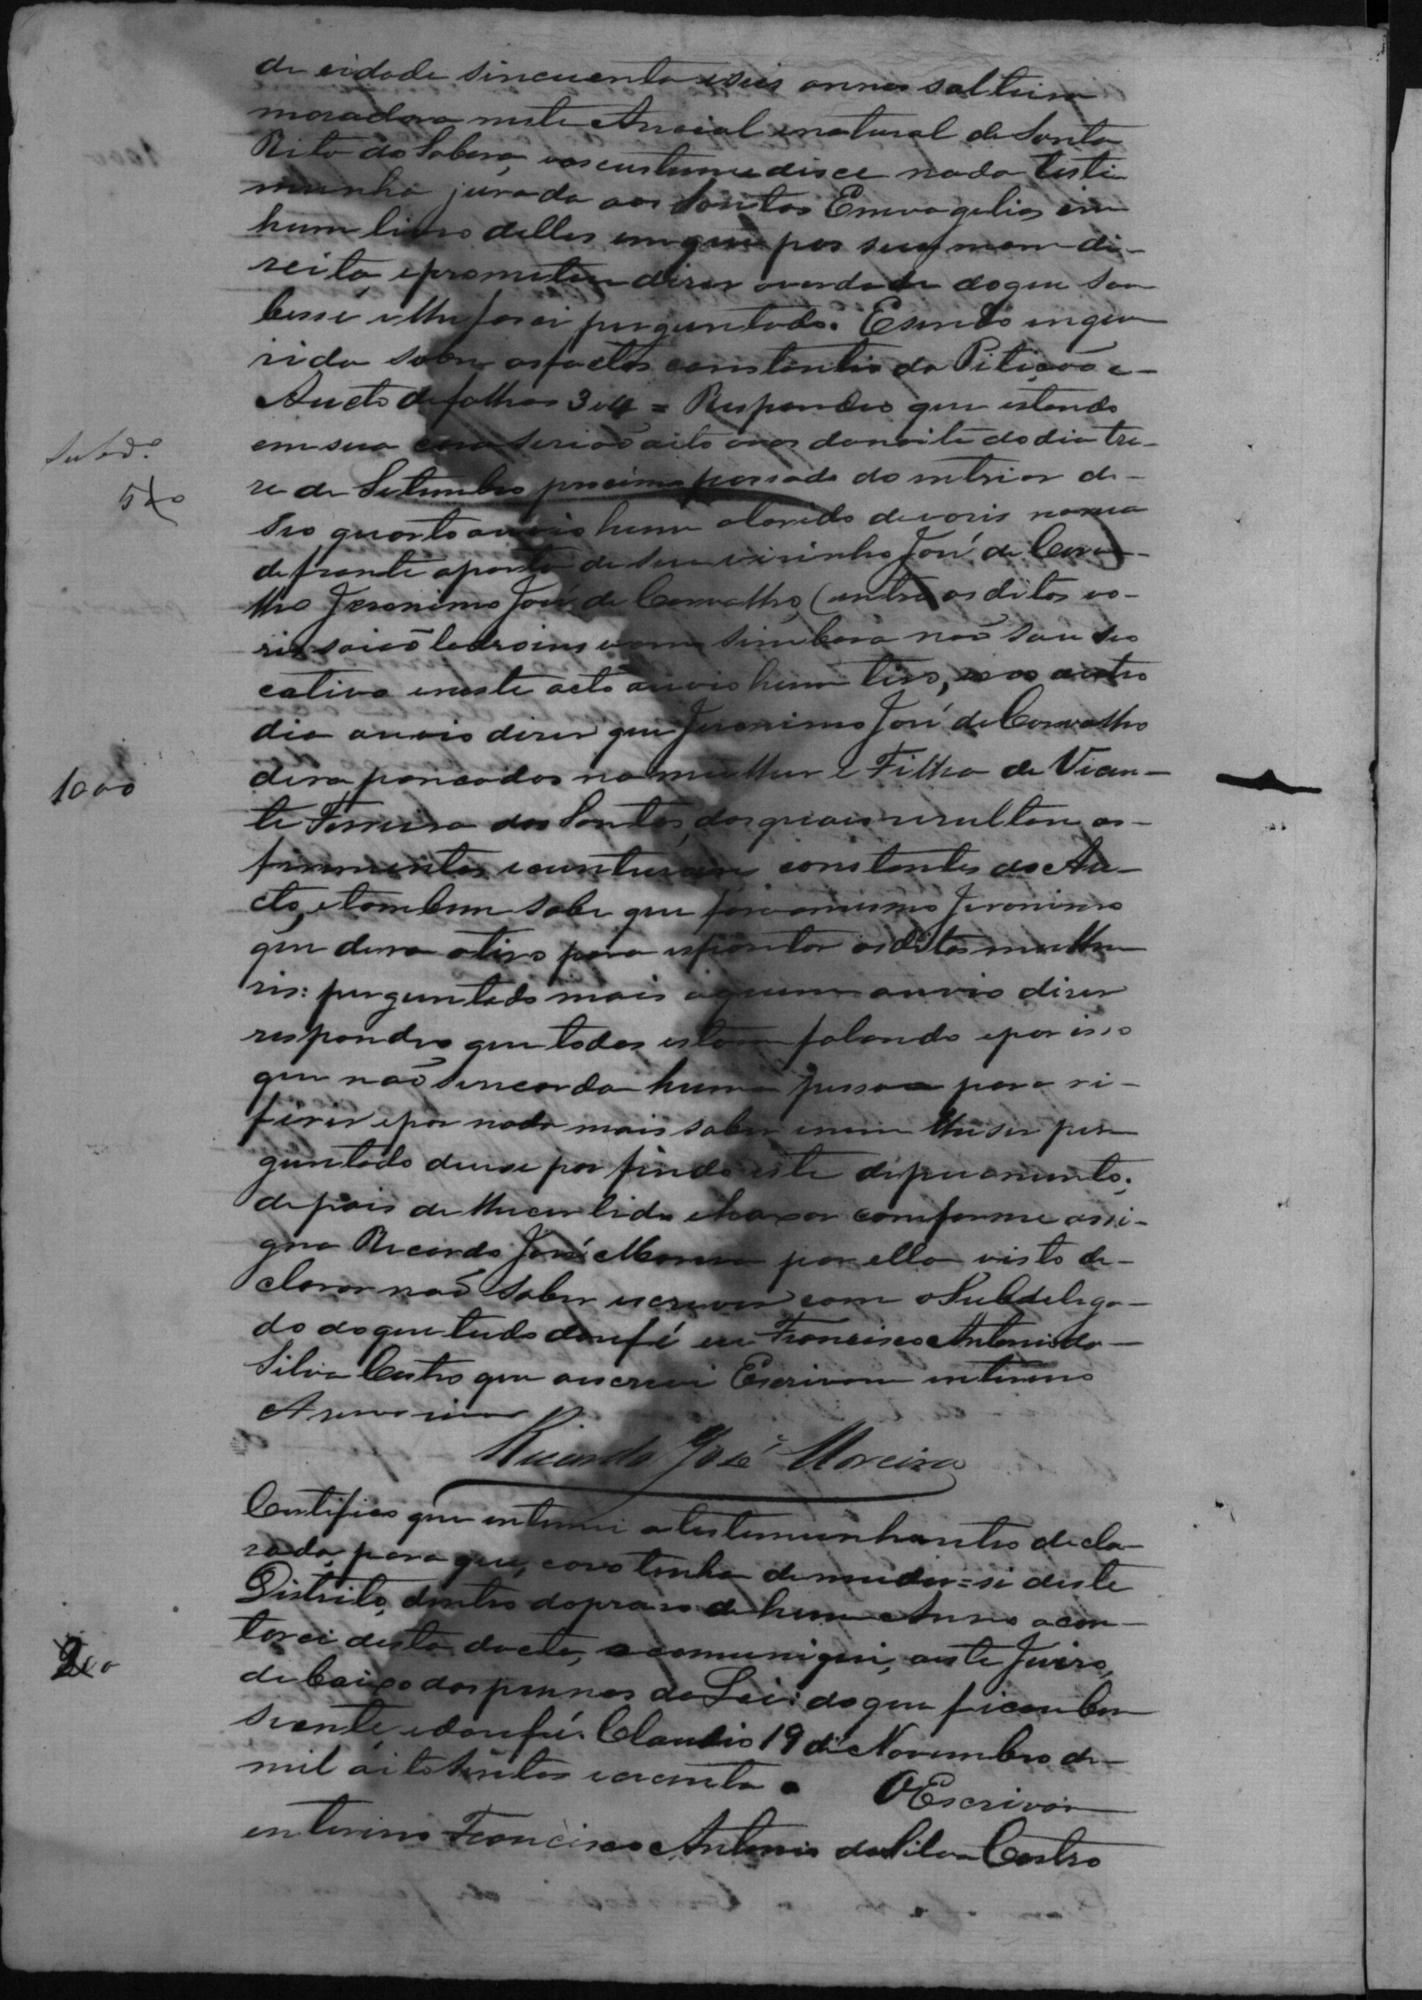 de eidade sincuenta e seis annos solteira
moradora neste Arraial enatural de Santa
Rita do
aos custume disce nada testi
munha jurada aos Santos Emvagelios em
hum livro delles em que pos sua mam di-
reita, eprometeu dizer averdade doque sou
besse elhe fosse perguntado. Esendo inque
rida sobre osfactos constantes da Petição e
Aucto de folhas 3 e 4 = Respondeo que estando
em sua casa serião oito oras danoite dodia tre-
ze de Setembro procimo passado do interior de
seo quarto ouvio hum alarido de vozis narua
defronte aporta de seu visinho José de Carva-
lho Jeronimo José de Carvalho, entre os ditos vo-
zis ladroins
cativa eneste acto ouvio hum tiro, e ao outro
dia ouvio dizer que Jeronimo José de Carvalho
dera pancadas na mulher e Filha de Vicen-
te Ferreira dos Santos, das quais resultou os
ferimentos econtuzoins constantes do Au-
cto, etambem sabe que fora omesmo Jeronimo
que dera otiro para espantar asditas mulhe
ris: perguntada mais aquem ouvio dizer
respondeo que todos estam falando epor isso
que não serecorda huma pessoa para ri-
ferir epor nada mais saber enem lhe ser per
guntado deuse por findo este dipuimento;
depois de lhe ser lido eachar comforme assi-
gna Ricardo José Moreira por ella visto de-
clarar não saber escrever com o Subdelega-
do doque tudo doufé eu Francisco Antonio da
Silva Castro que oescrevi Escrivam interino
Ricardo José Moreira
Certifico que entimei atestemunha retro decla-
rada, para que, cazo tenha demudar=si deste
Distrito, dentro doprazo de hum Anno acon-
tar desta data, ocomuniqui, aeste Juizo,
debaixo das pennas da Lei: do que ficou bem
siente, edoufé. Claudio 19 de Novembro de
mil oito sentos e O Escrivão
enterino Francisco Antonio da Silva Castro
Subd.º
1000